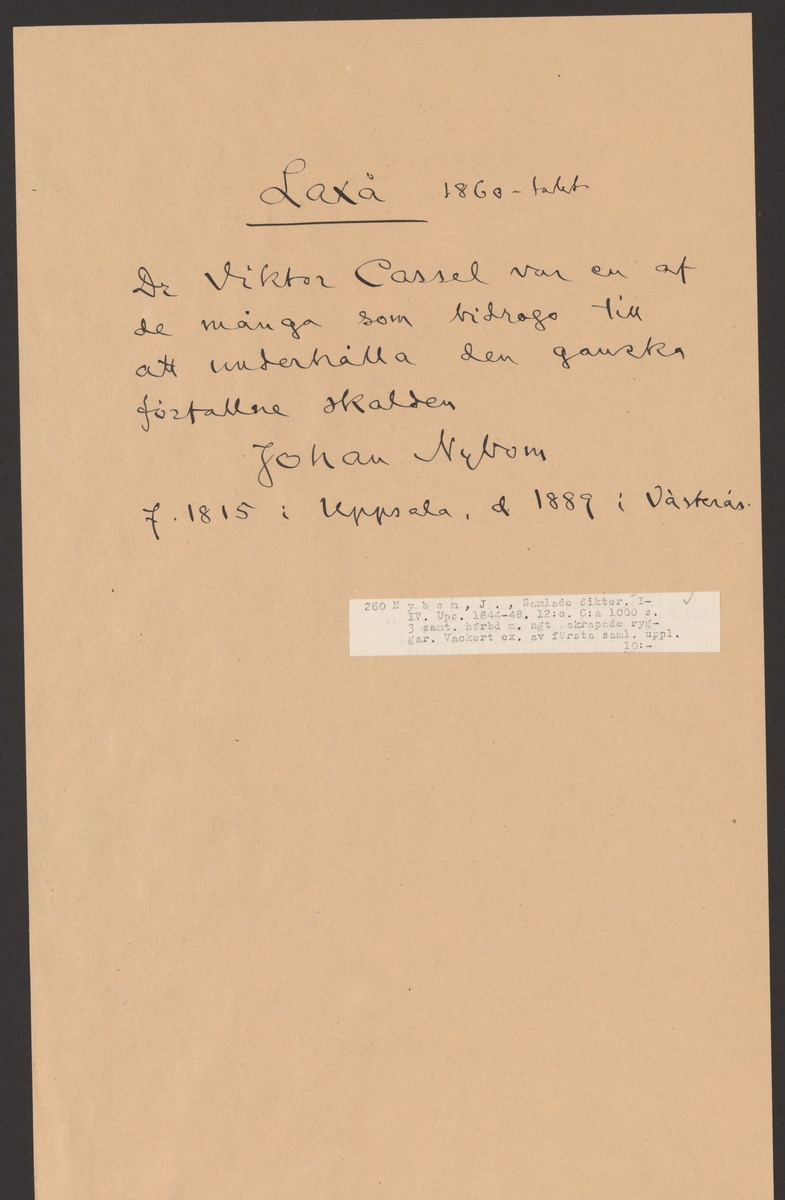 Laxå 1860-talet
Dr Viktor Cassel var en af
de många som bidrogo till
att underhålla den ganska
förfallne skalden
Johan Nybom
f. 1815 i Uppsala, d 1889 i Västerås.
260 N y b o m , J . , Samlade dikter. I-
IV. Ups. 1844-48. 12:o. C:a 1000 s.
3 samt. hfrbd m. ngt skrapade ryg-
gar. Vackert ex. av första saml. uppl.
10:-